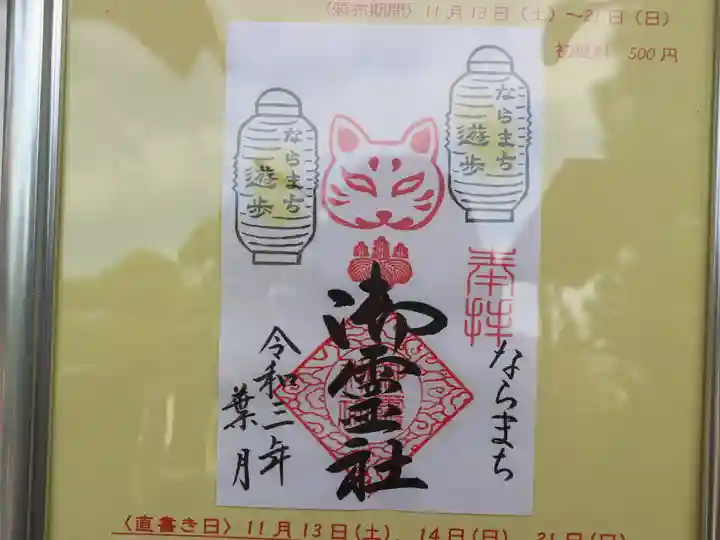 〈頒布期間〉11月13日（土）～21日（日）
初穂料 500円
ならまち
遊歩
ならまち
遊歩
奉拝
ならまち
御霊社
令和三年
葉月
〈直書き日〉11月13日（土）、14日（日）、21日（日）